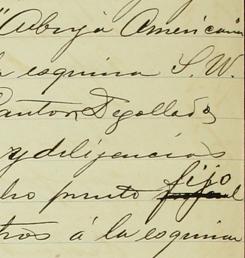 "Aubrija American
esquina S. W.
Cantor, Degollado
y diligencias
punto fijo
á la esquina